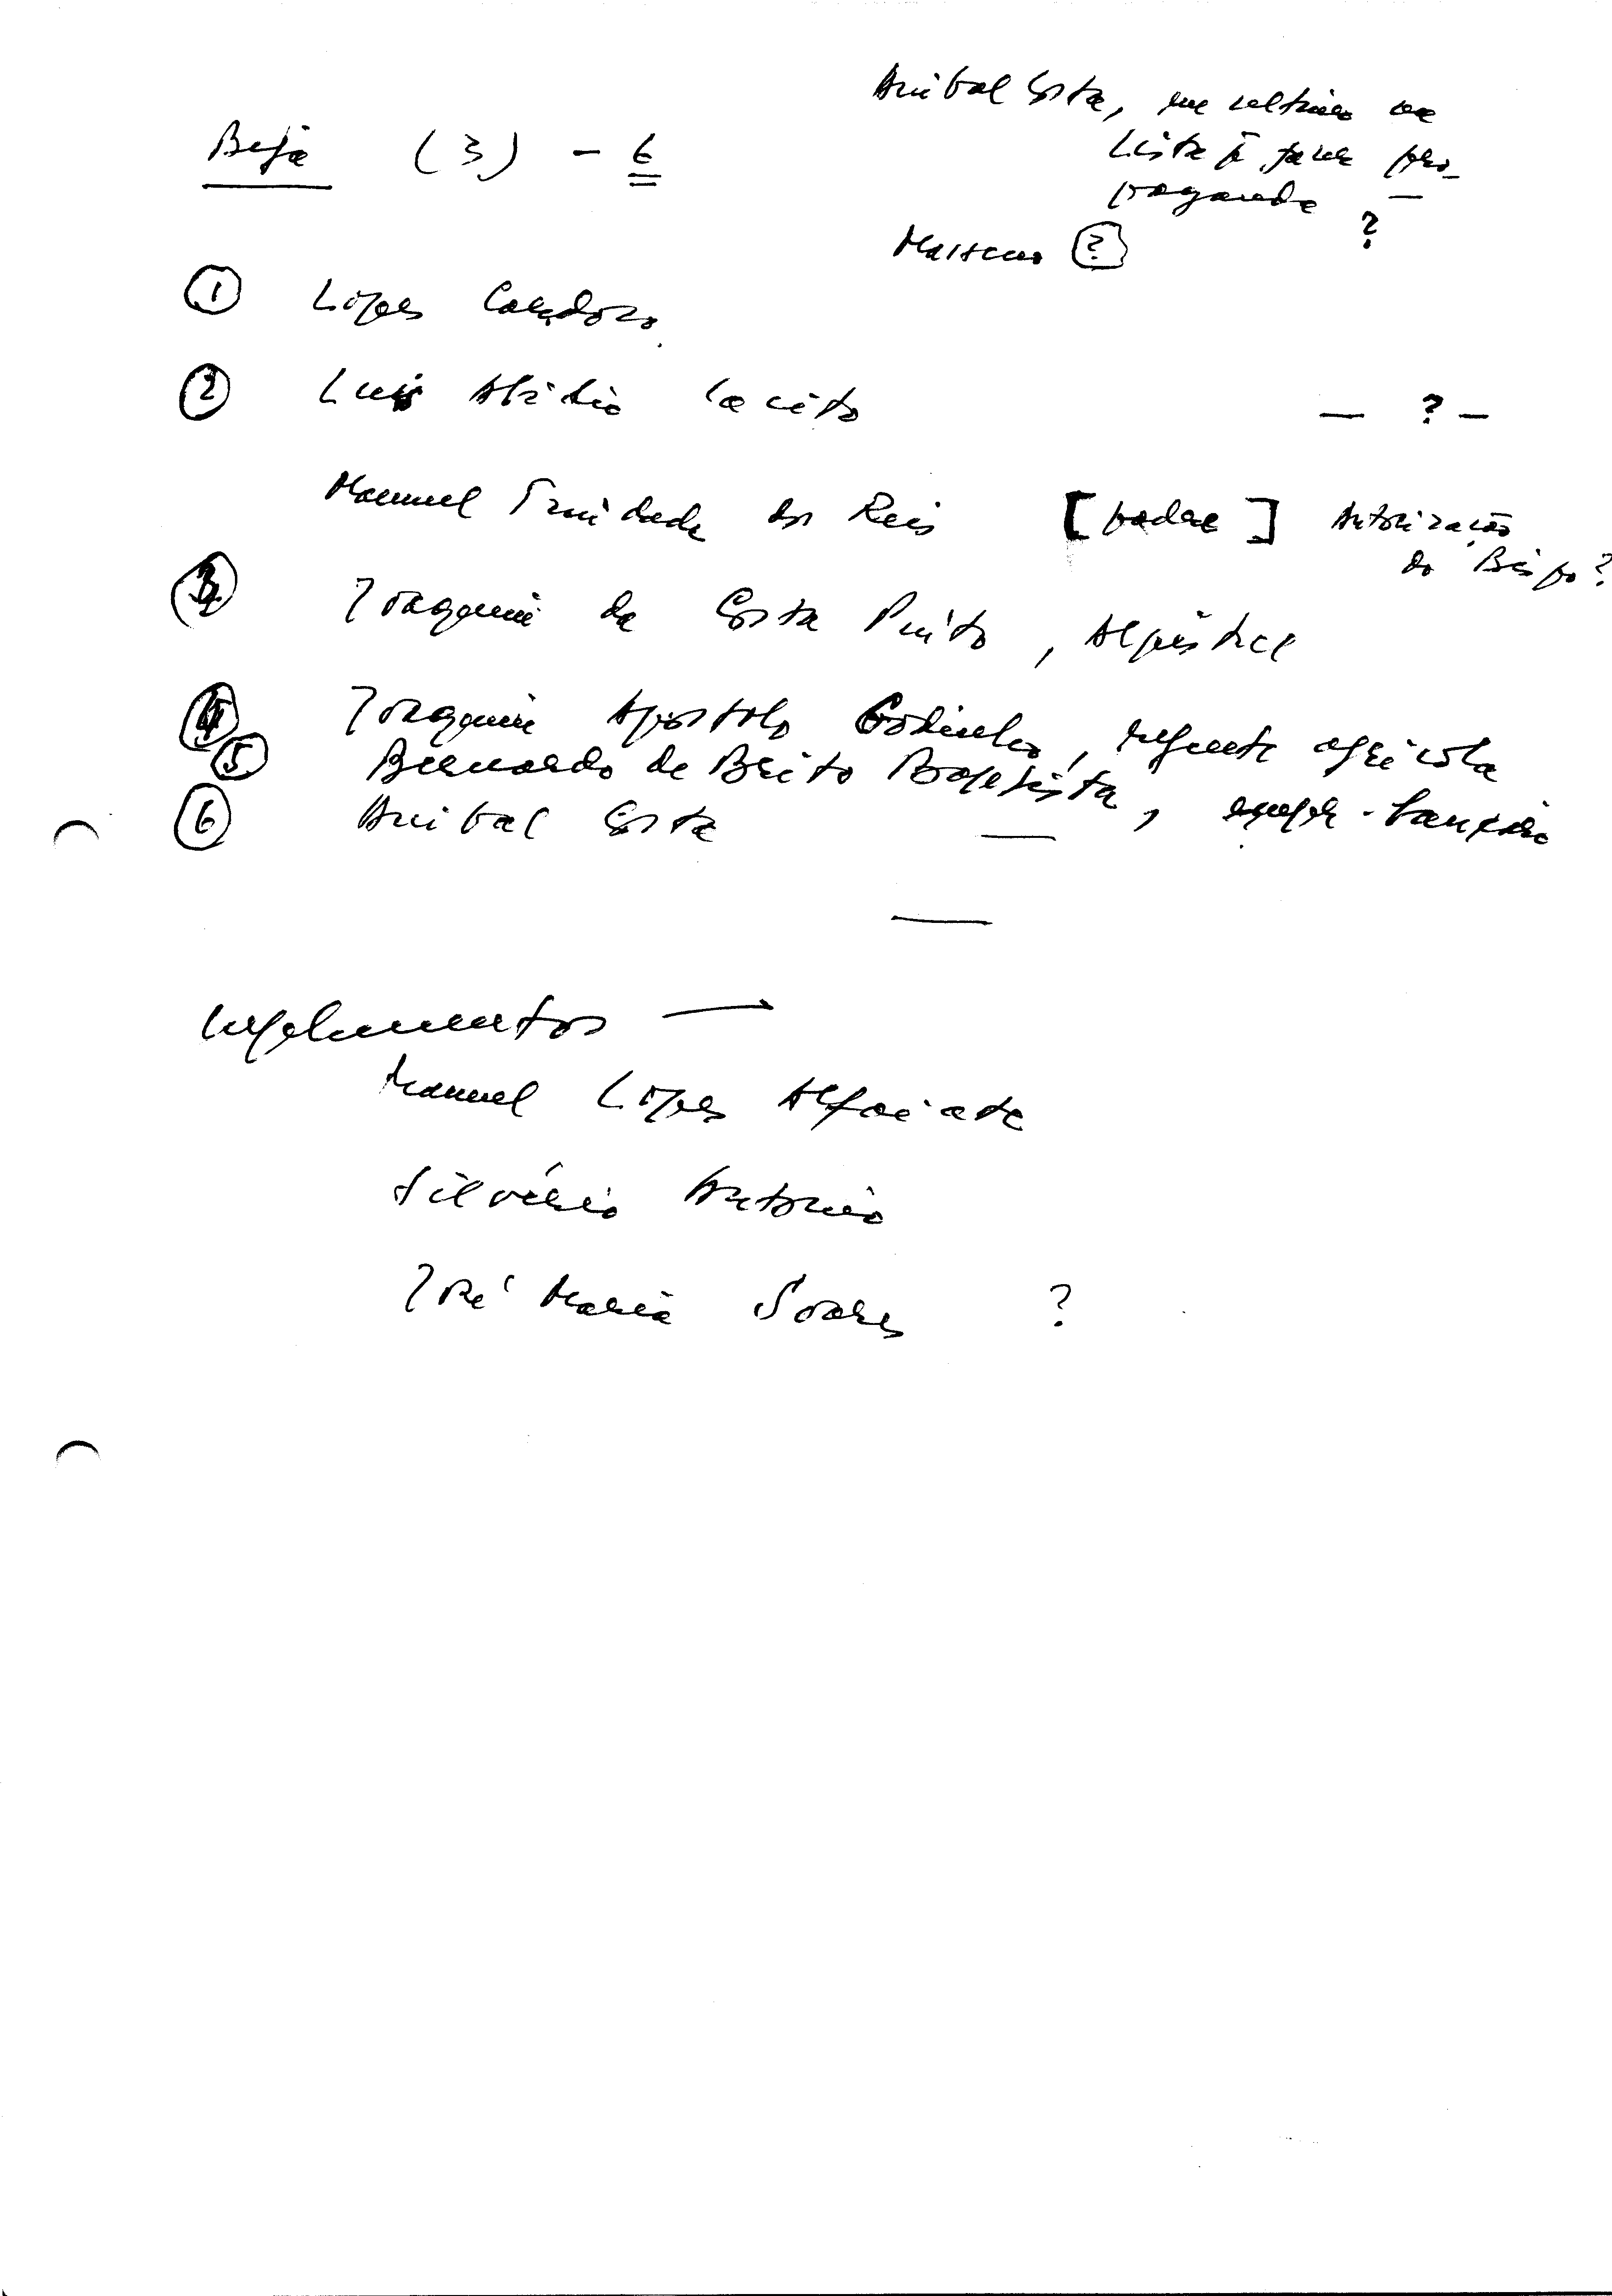 Anibal Costa, em último na
Lista p. fazer pro-
paganda ?
Beja (3) - 6
① Lopes Cardoso
② Luis Abílio Cacito — ? —
Manuel Trindade dos Reis [padre] Autorização
do Bispo?
③ Joaquim da Costa Pinto, Aljustrel
④ Joaquim Apóstolo Godinho, regente agrícola
⑤ Bernardo de Brito Baptista, empr. bancário
⑥ Anibal Costa —
Suplementos —
Manuel Lopes Alfaiate
Silvério António
José Maria Soares ?